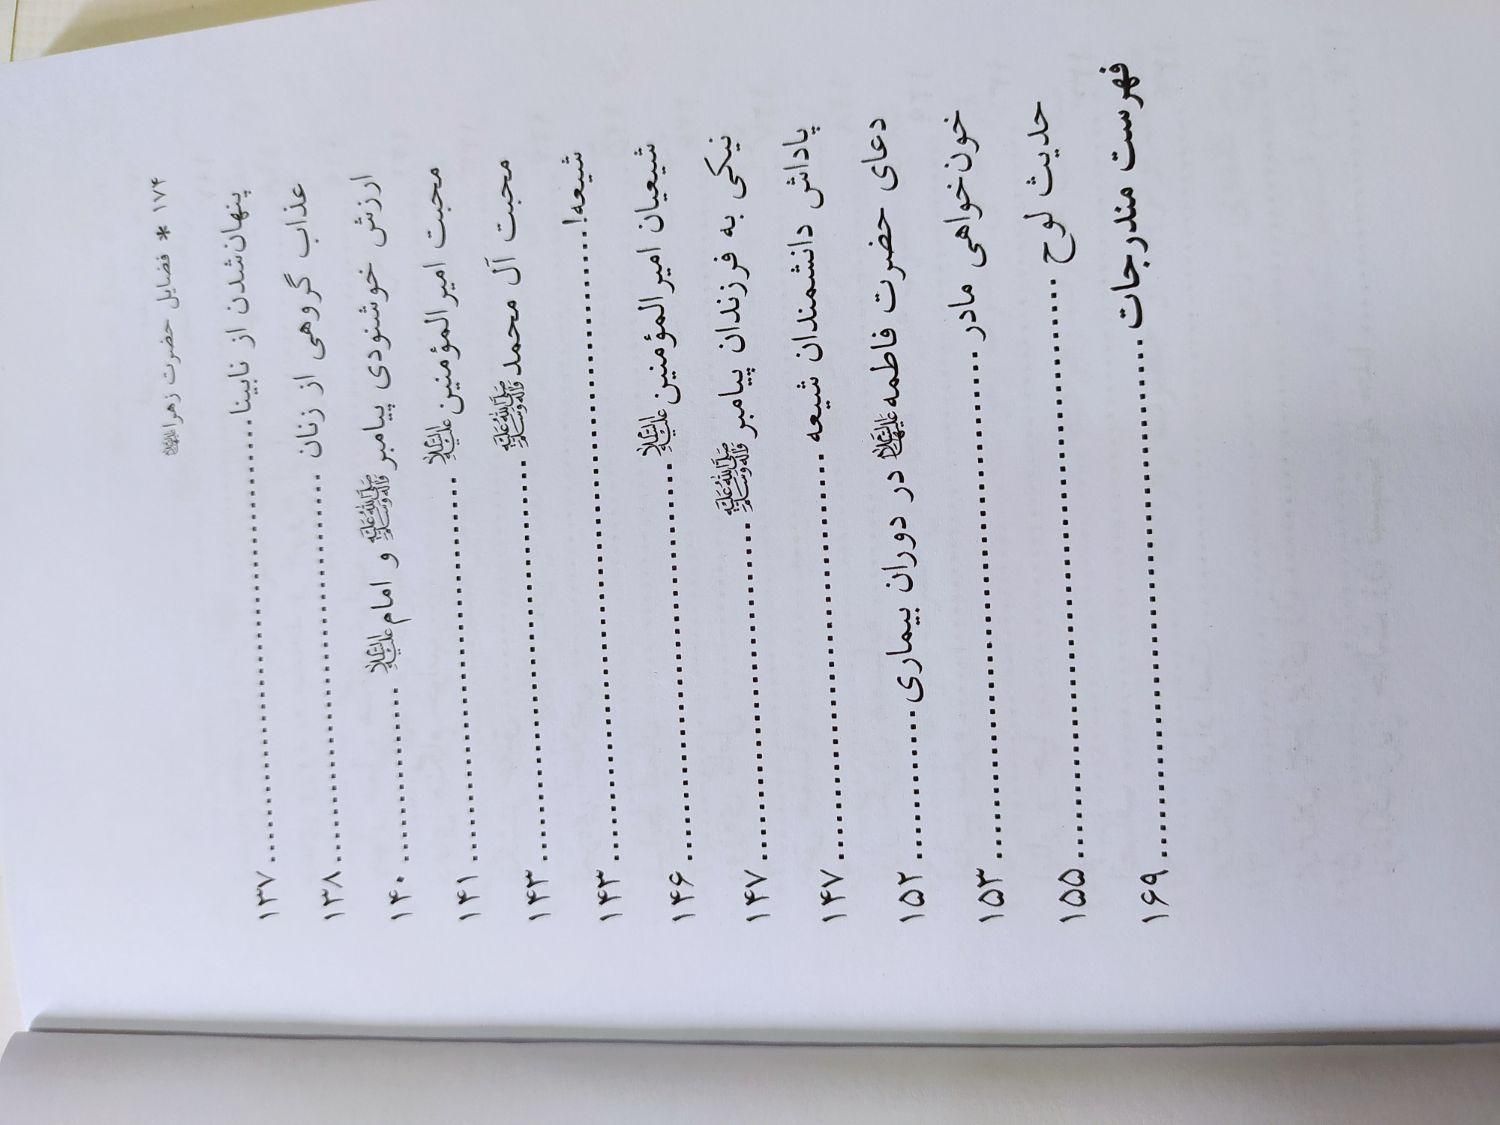 ۱۷۴ * فضایل حضرت زهرا علیها السلام
پنهان‌شدن از نابینا ........ ۱۳۷
عذاب گروهی از زنان ........ ۱۳۸
ارزش خوشنودی پیامبر صلی الله علیه وآله وسلم و امام علیه السلام ........ ۱۴۰
محبت امیرالمؤمنین علیه السلام ........ ۱۴۱
محبت آل محمد صلی الله علیه وآله وسلم ........ ۱۴۳
شیعه! ........ ۱۴۳
شیعیان امیرالمؤمنین علیه السلام ........ ۱۴۶
نیکی به فرزندان پیامبر صلی الله علیه وآله وسلم ........ ۱۴۷
پاداش دانشمندان شیعه ........ ۱۴۷
دعای حضرت فاطمه علیها السلام در دوران بیماری ........ ۱۵۲
خون‌خواهی مادر ........ ۱۵۳
حدیث لوح ........ ۱۵۵
فهرست مندرجات ........ ۱۶۹